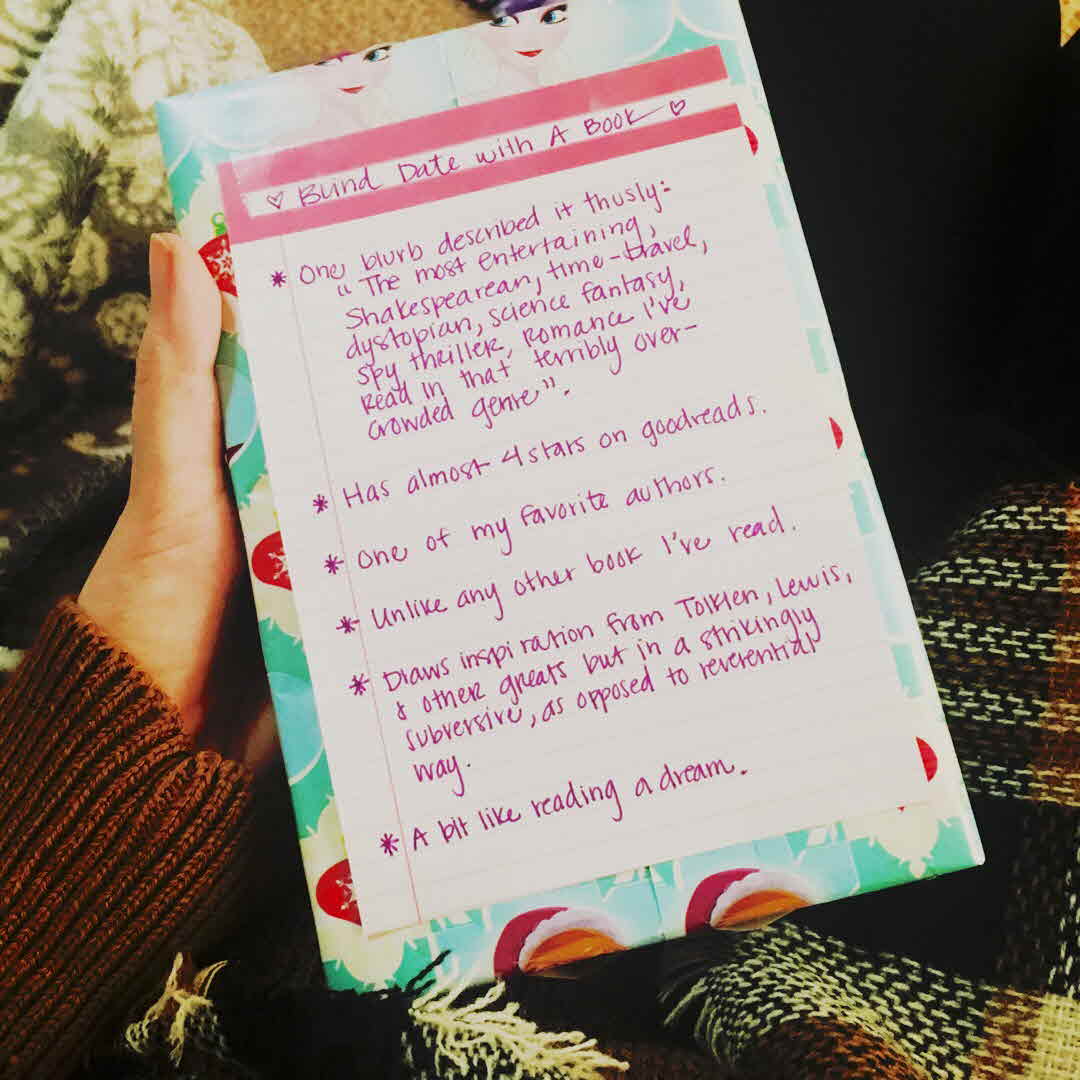 ♡ Blind Date with A Book ♡
* One blurb described it thusly:
"The most entertaining,
Shakespearean, time-travel,
dystopian, science fantasy,
spy thriller, romance I've
read in that terribly over-
crowded genre".
* Has almost 4 stars on goodreads.
* One of my favorite authors.
* Unlike any other book I've read.
* Draws inspiration from Tolkien, Lewis,
& other greats but in a strikingly
subversive, as opposed to reverential,
way.
* A bit like reading a dream.